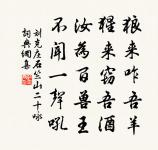 狼来咋吾羊
猩来窃吾酒
汝为百兽王
不闻一声吼
刘克庄石竺山二十咏
词典网集